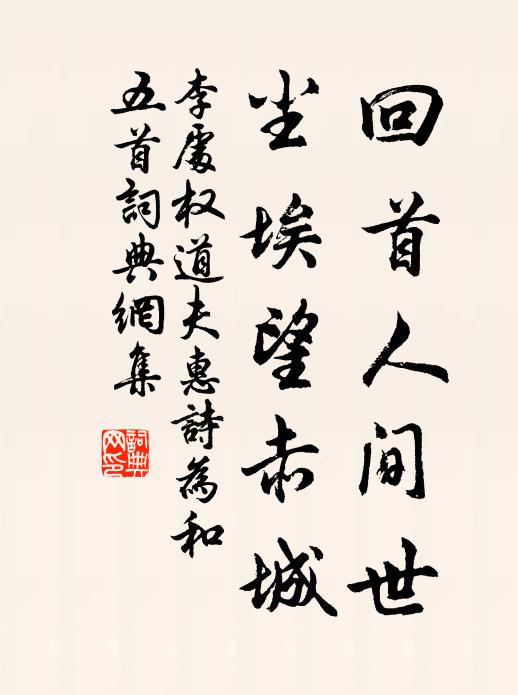 回首人间世
尘埃望赤城
李處权道夫惠詩為和
五首詞典網集
詞典
网印